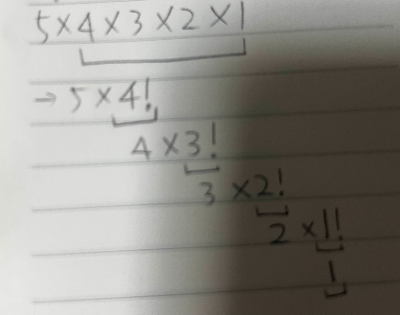 5×4×3×2×1
→ 5×4!
4×3!
3×2!
2×1!
1